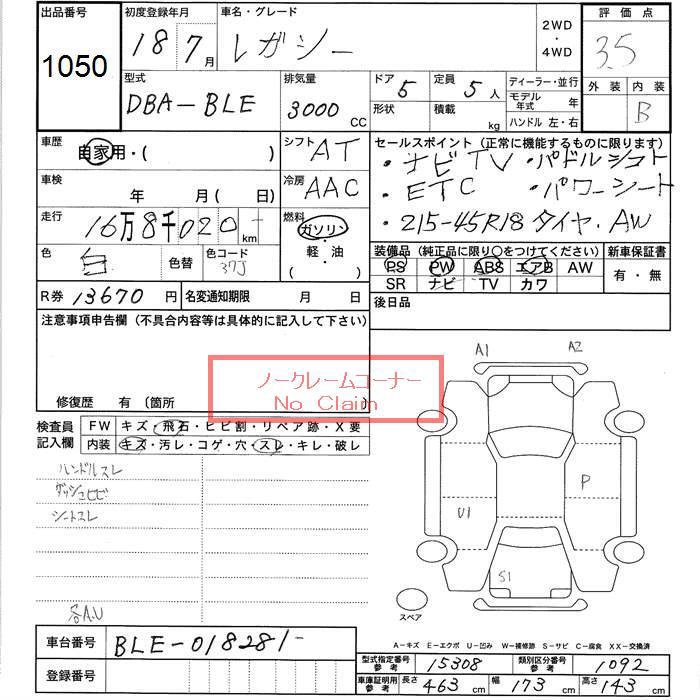 出品番号 初度登録年月 車名・グレード 2WD ・ 4WD 評価点
1050 18 7月 レガシー 3.5
型式 排気量 ドア 5 定員 5人 ディーラー・並行 外装 内装
DBA-BLE 3000 CC 形状 積載 kg モデル年式 年 B
ハンドル 左・右
車歴 自家用・( ) シフト AT セールスポイント (正常に機能するものに限ります)
・ナビTV ・パドルシフト
車検 年 月(日) 冷房 AAC ・ETC ・パワーシート
走行 16万8千020 km 燃料 ガソリン ・215-45R18タイヤ・AW
軽・油
( )
色 白 色替 色コード 37J 装備品 (純正品に限り○をつけてください) 新車保証書
PS PW ABS エアB AW 有・無
SR ナビ TV カワ
R券 13670円 名変通知期限 月 日 後日品
注意事項申告欄 (不具合内容等は具体的に記入して下さい)
ノークレームコーナー
No Claim
修復歴 有 (箇所
検査員記入欄 FW キズ・飛石・ヒビ割・リペア跡・X要
内装 キズ・汚レ・コゲ・穴・スレ・キレ・破レ
ハンドルスレ
ダッシュヒビ
シートスレ
各A.U
A1 A2
P
U1
S1
スペア
A-キズ E-エクボ U-凹み W-補修跡 S-サビ C-腐食 XX-交換済
車台番号 BLE-018281-
登録番号
型式指定番号参考 15308 類別区分番号参考 1092
車庫証明用参考 長さ 463 cm 幅 173 cm 高さ 143 cm